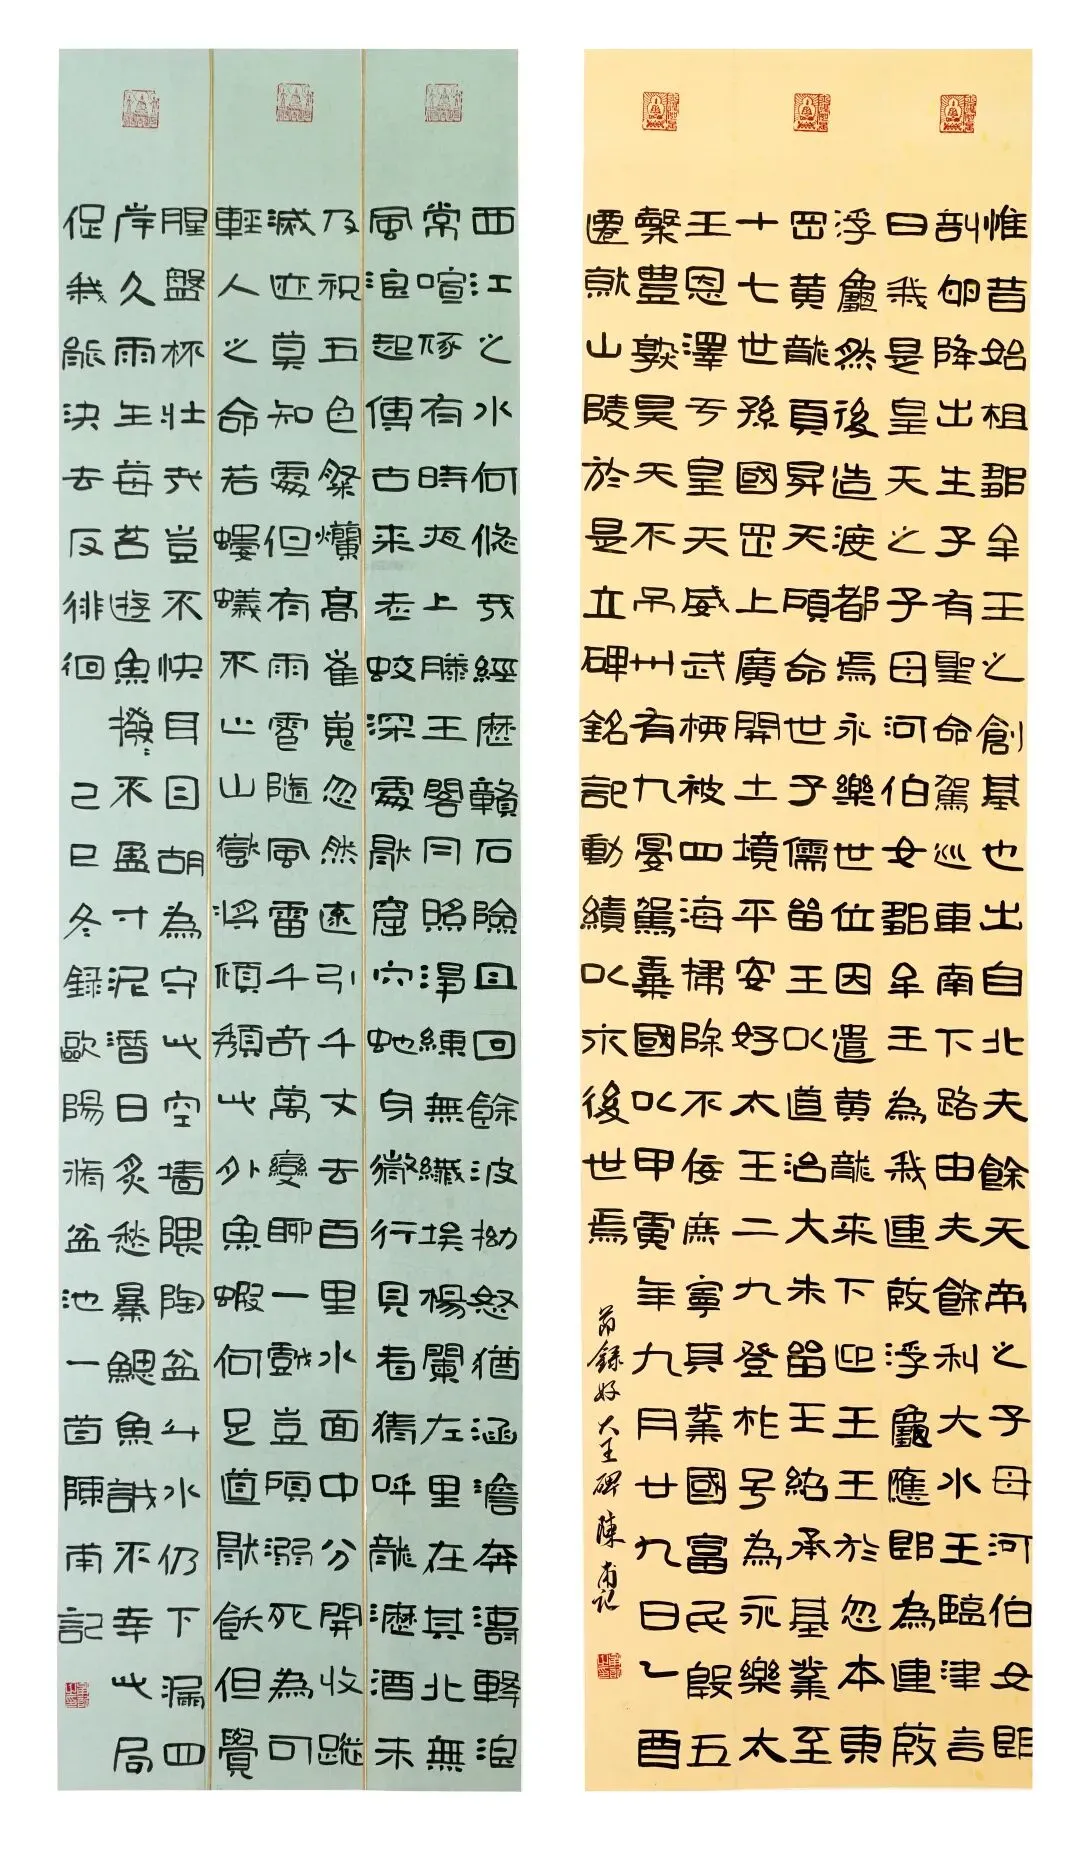 惟昔始祖鄒牟王之創基也出自北夫餘天帝之子母河伯女郎
剖卵降出生子有聖命駕巡車南下路由夫餘利大水王臨津言
曰我是皇天之子母河伯女鄒牟王為我連葭浮龜應即為連葭
浮龜然後造渡都焉永樂世位因遣黃龍來下迎王王於忽本東
罡黃龍頁昇天顧命世子儒留王以道治大朱留王紹承基業至
十七世孫國罡上廣開土境平安好太王二九登祚号為永樂太
王恩澤于皇天威武柳被四海掃除不佞庶寧其業國富民殷五
穀豐熟昊天不弔卅有九晏駕棄國以甲寅年九月廿九日乙酉
遷就山陵於是立碑銘記勳績以示後世焉
節錄好大王碑陳南記
西江之水何悠哉經歷贛石險且回餘波拗怒猶涵澹奔濤擊浪
常喧豗有時夜上滕王閣月照淨練無纖埃楊瀾左里在其北無
風浪起傳古來老蛟深處厭窟穴蛇身微行見者猜呼龍瀝酒未
及祝五色粲爛高崔嵬忽然遠引千丈去百里水面中分開收蹤
滅迹莫知處但有雨雹隨風雷千奇萬變聊一戲豈顧溺死為可
輕人之命若螻蟻不止山嶽將傾頹此外魚蝦何足道厭飫但覺
腥盤杯壯哉豈不快耳目胡為守此空墻隈陶盆斗水仍下漏四
岸久雨生莓苔遊魚撥〻不盈寸泥潛日炙愁暴鰓魚誠不幸此局
促我能決去反徘徊 己巳冬錄歐陽脩盆池一首陳南記